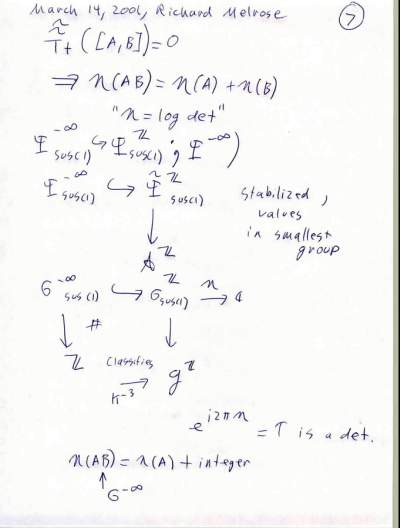 March 14, 2001, Richard Melrose
7
T̃₊ ([A,B])=0
⇒ η(AB) = η(A) + η(B)
"η = log det"
Ψ^{-∞}_{sus(1)} ↪ Ψ^{ℤ}_{sus(1)} ; Ψ^{-∞})
Ψ^{-∞}_{sus(1)} ↪ Ψ̃^{ℤ}_{sus(1)}
stabilized,
values
in smallest
group
↓
A^{ℤ}
G^{-∞}_{sus(1)} ↪ G^{ℤ}_{sus(1)} →^{η} ¢
↓ # ↓
ℤ classifies → K^{-3} g^{ℤ}
e^{i2πη} = T is a det.
η(AB) = η(A) + integer
↑
G^{-∞}